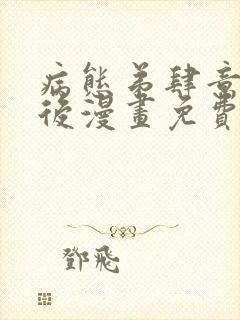 病態弟肆章
後漫畫免費
鄧飛